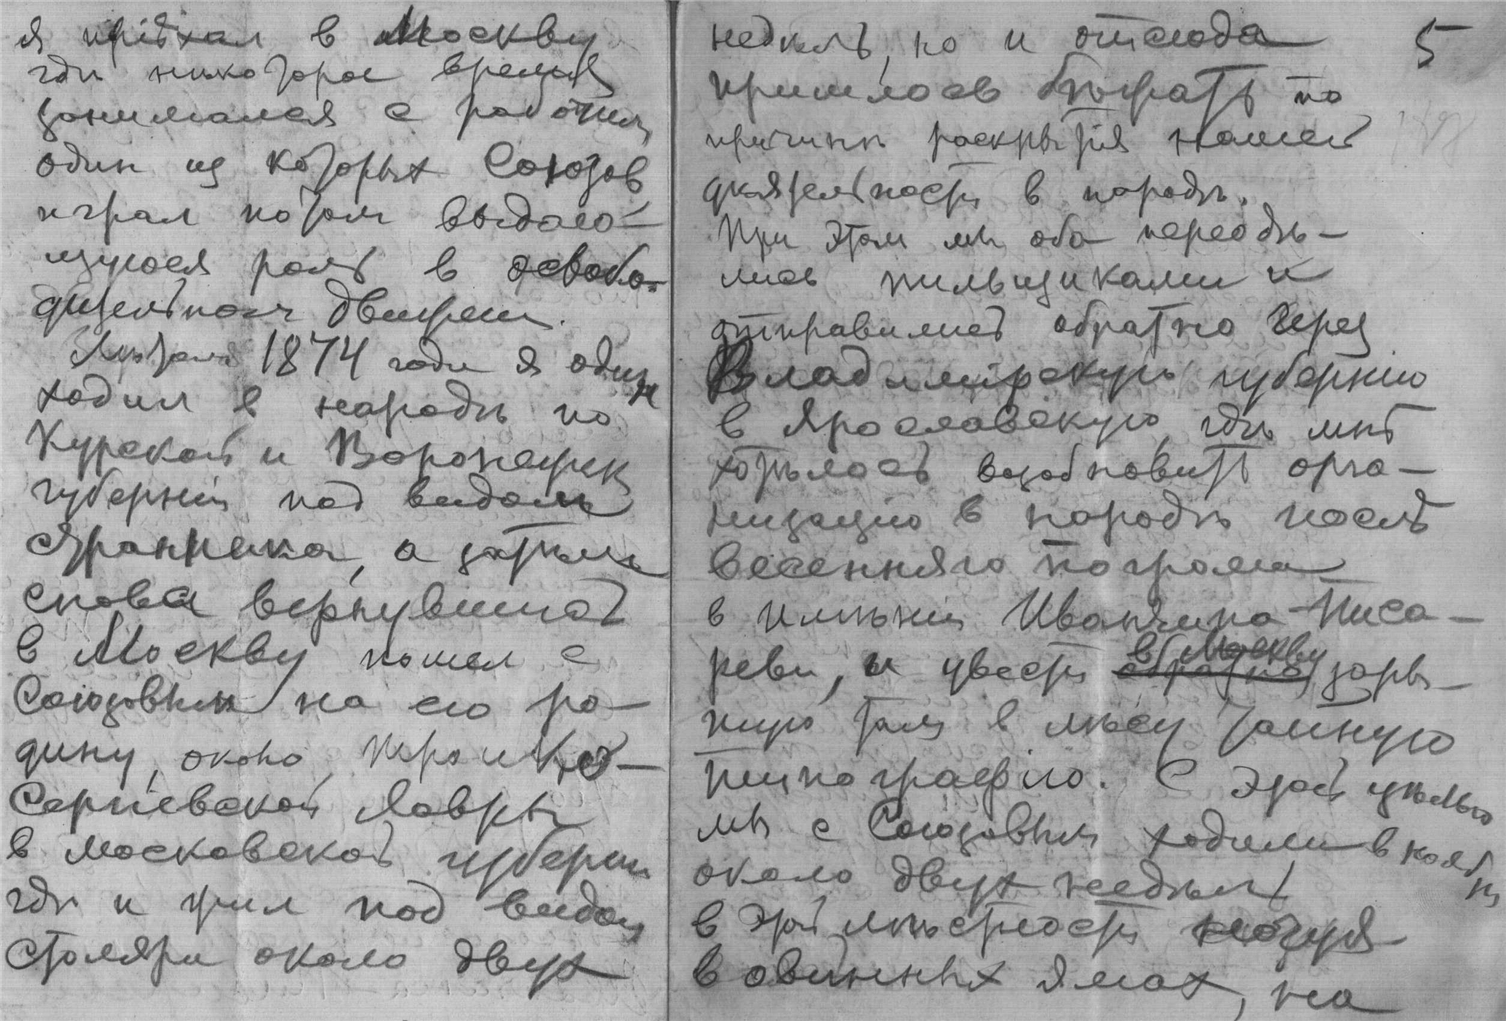 я пріѣхал в Москву
гдѣ нѣкоторое время
занимался с рабочим,
один из которых Союзов
играл потом выдаю-
щуюся роль в освобо-
дительном движении.
1874 года я один
ходил в народъ по
Курской и Воронежск
губерніи под видом
странника, а затѣм
снова вернувшись
в Москву пошел с
Союзовым на его ро-
дину, около Троицко-
Сергіевской Лавры
в московской губерніи
гдѣ и жил под видом
столяра около двух
5
недѣль, но и отсюда
пришлось бѣжать по
причинѣ раскрытія нашей
дѣятельности в народѣ.
При этом мы оба переодѣ-
лись пильщиками и
отправились обратно через
Владимирскую губернію
в Ярославскую, гдѣ мнѣ
хотѣлось возобновить орга-
низацію в народѣ послѣ
весенняго погрома
в имѣніи Иванчина-Писа-
рева, и увезти обратно в Москву зары-
тую там в лѣсу тайную
типографію. С этой цѣлью
мы с Союзовым ходили в ноябрѣ
около двух недѣль
в этой мѣстности ночуя
в овинных ямах, на